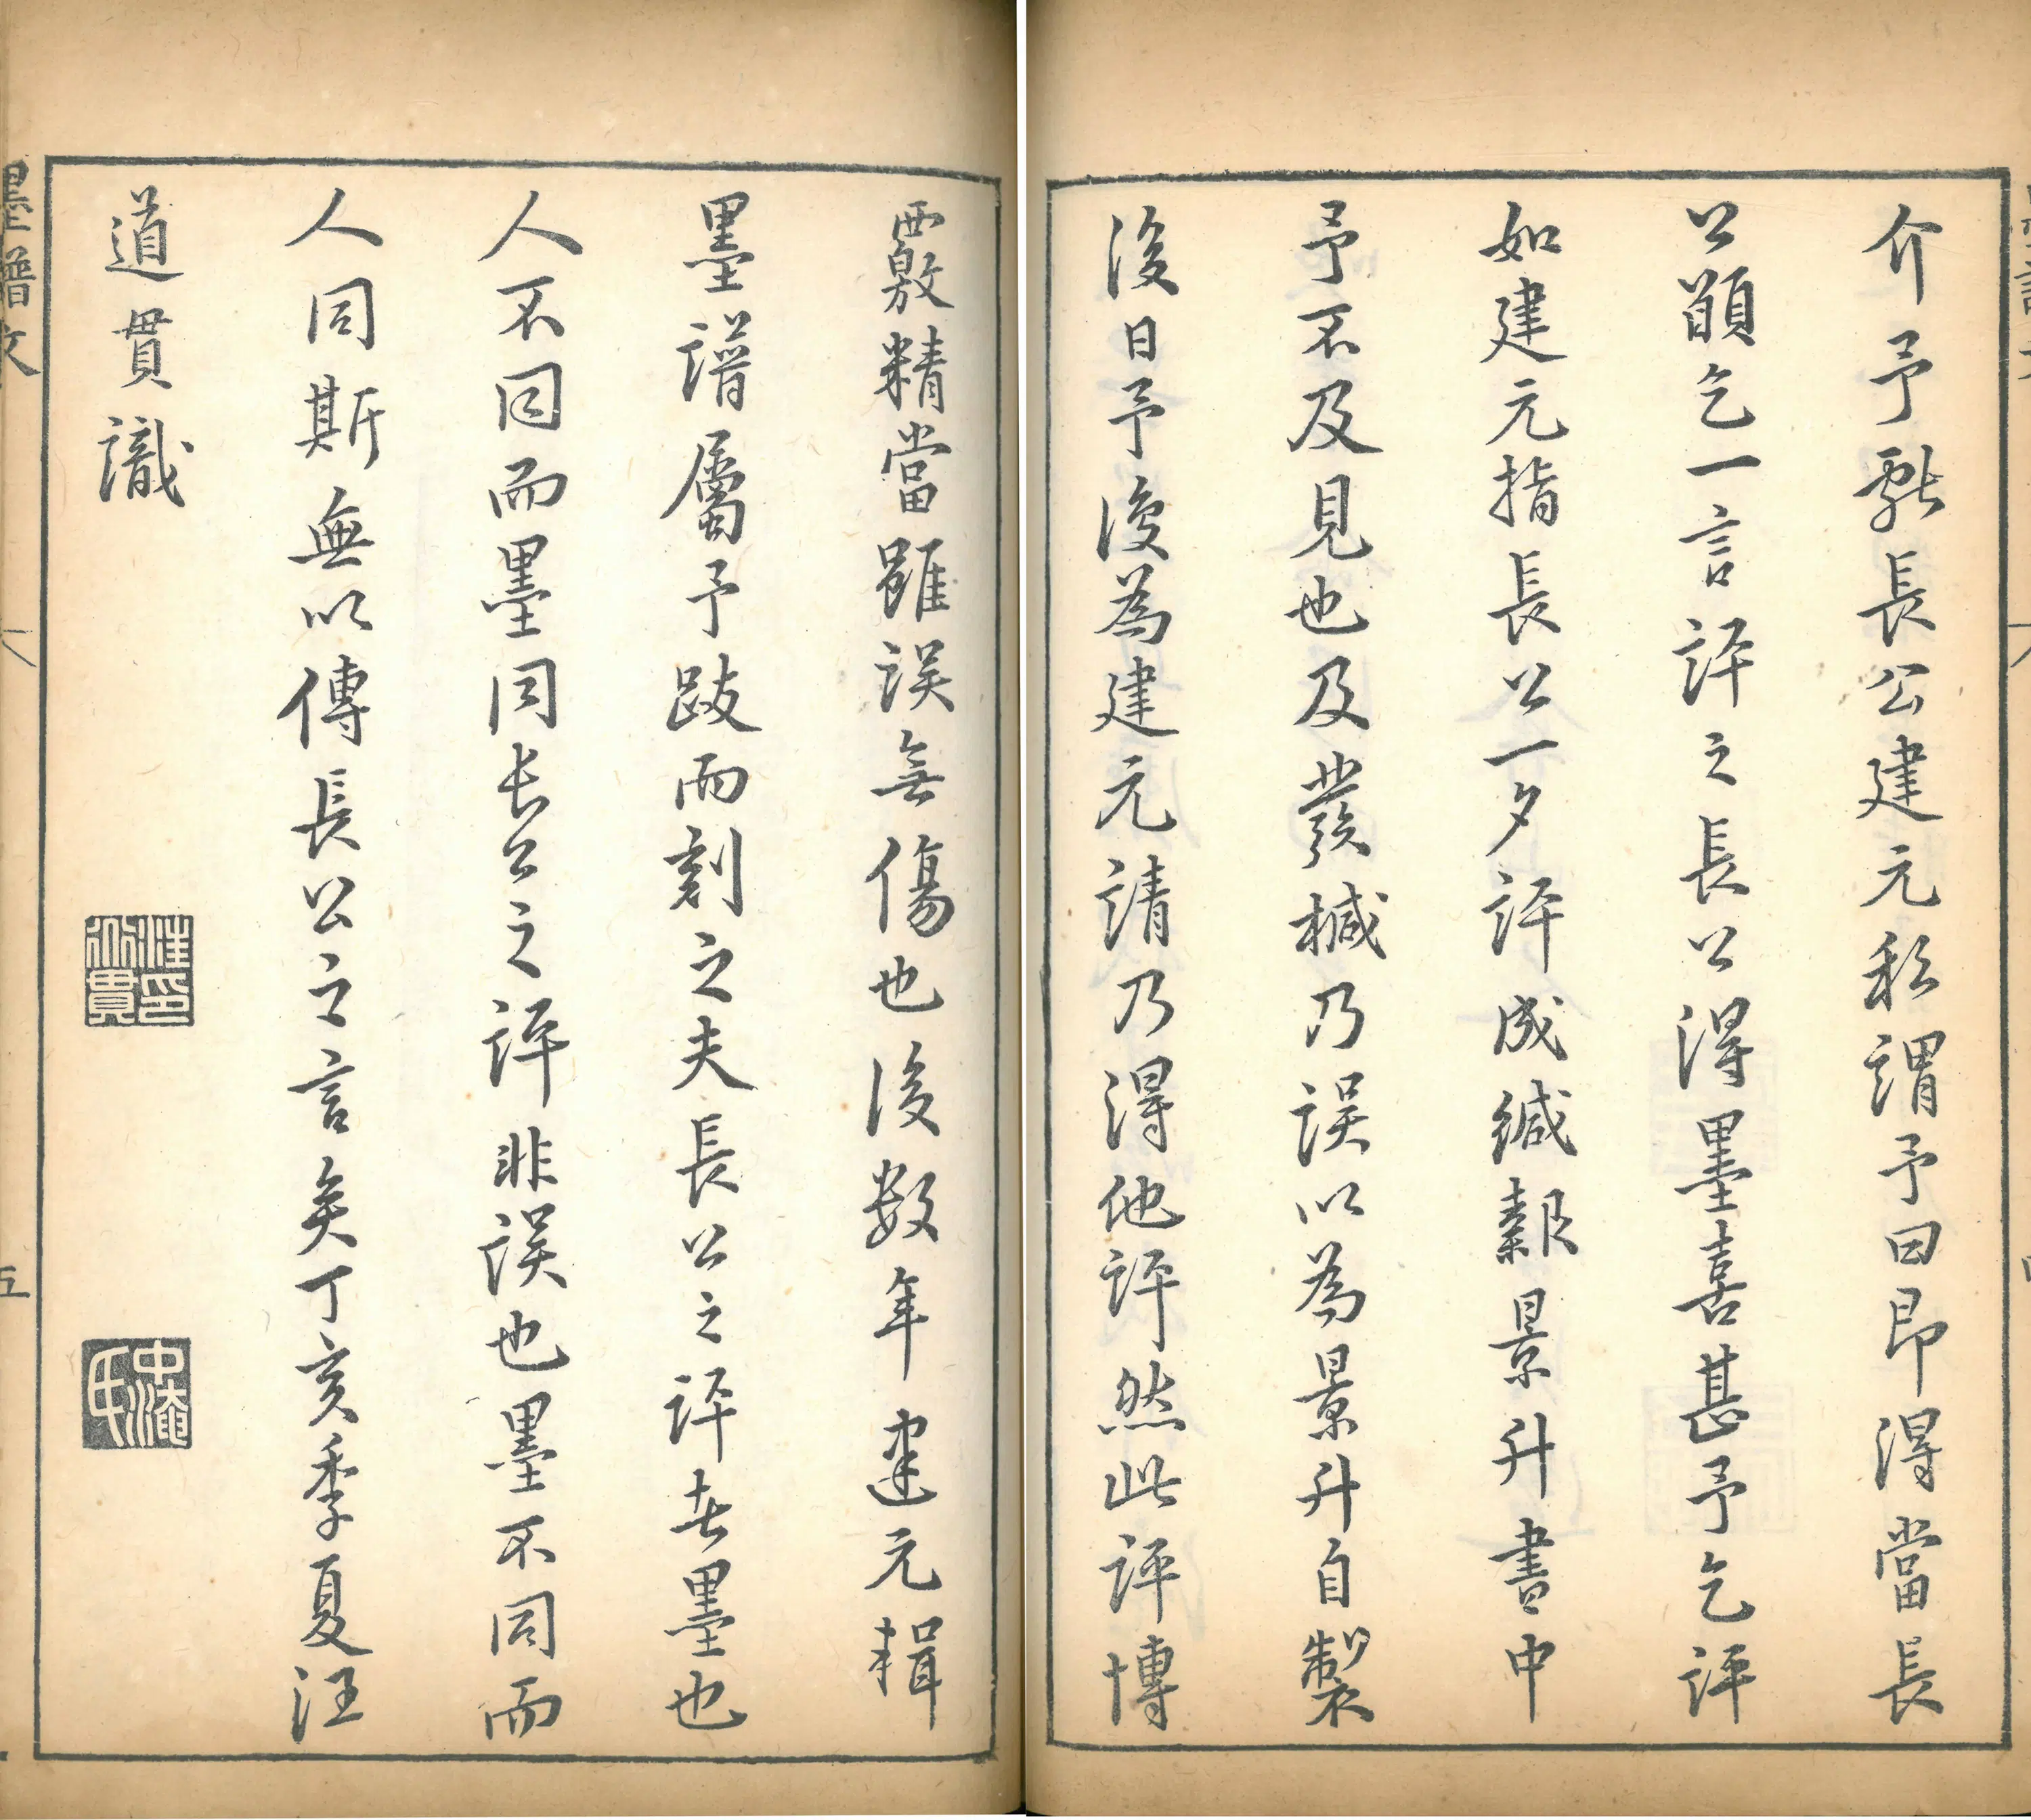 介予獻長公建元私謂予曰即得當長
公顓乞一言評之長公得墨喜甚予乞評
如建元指長公一夕評成緘報景升書中
予不及見也及發椷乃誤以為景升自製
後日予復為建元請乃得他評然此評博
覈精當雖誤無傷也後数年建元輯
墨譜屬予跋而刻之夫長公之評在墨也
人不同而墨同長公之評非誤也墨不同而
人同斯無以傳長公之言矣丁亥季夏汪
道貫識
汪印道貫
中淹氏
墨譜文
五